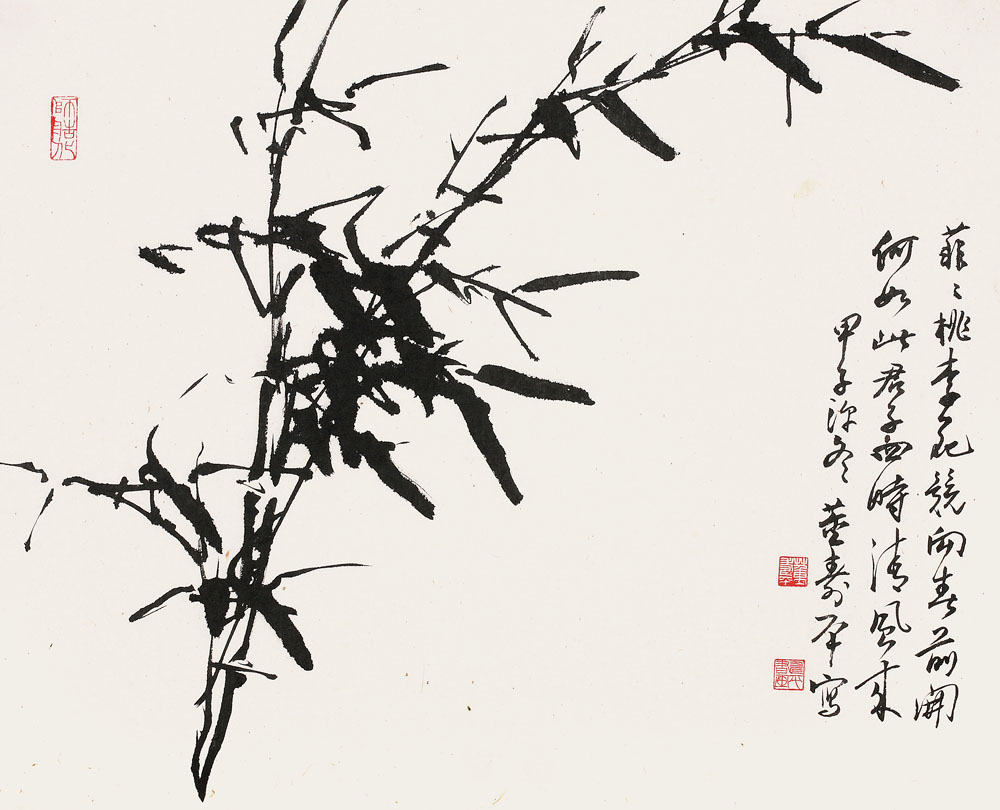 菲々桃李花競向春前開
何如此君子四時清風來
甲子深冬董壽平寫
董壽平